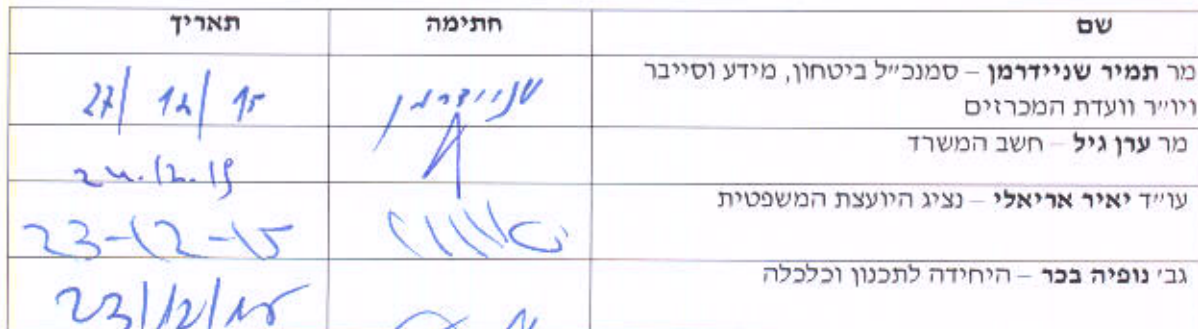 שם חתימה תאריך
מר תמיר שניידרמן – סמנכ״ל ביטחון, מידע וסייבר
ויו״ר וועדת המכרזים
שניידרמן 27/12/15
מר ערן גיל – חשב המשרד
24.12.15
עו״ד יאיר אריאלי – נציג היועצת המשפטית
23-12-15
גב׳ נופיה בכר – היחידה לתכנון וכלכלה
23/12/15